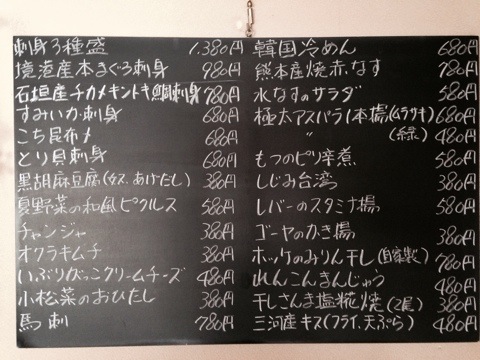 刺身3種盛 1,380円
境港産本まぐろ刺身 980円
石垣産チカメキントキ鯛刺身 780円
すみいか刺身 680円
こち昆布〆 680円
とり貝刺身 680円
黒胡麻豆腐(タス、あげだし) 380円
夏野菜の和風ピクルス 580円
チャンジャ 380円
オクラキムチ 380円
いぶりがっこクリームチーズ 480円
小松菜のおひたし 380円
馬刺 780円
韓国冷めん 680円
熊本産焼赤なす 780円
水なすのサラダ 580円
極太アスパラ1本揚(ムラサキ) 680円
〃 (緑) 480円
もつのピリ辛煮 580円
しじみ台湾 380円
レバーのスタミナ揚 580円
ゴーヤのかき揚 380円
ホッケのみりん干し(自家製) 780円
れんこんまんじゅう 480円
干しさんま塩糀焼(2尾) 380円
三河産キス(フライ、天ぷら) 480円